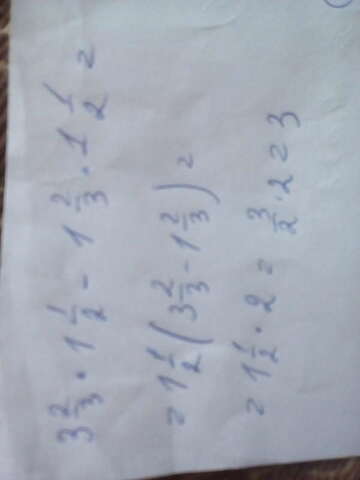 3 2/3 · 1 1/2 - 1 2/3 · 1 1/2 =
= 1 1/2 (3 2/3 - 1 2/3) =
= 1 1/2 · 2 = 3/2 · 2 = 3